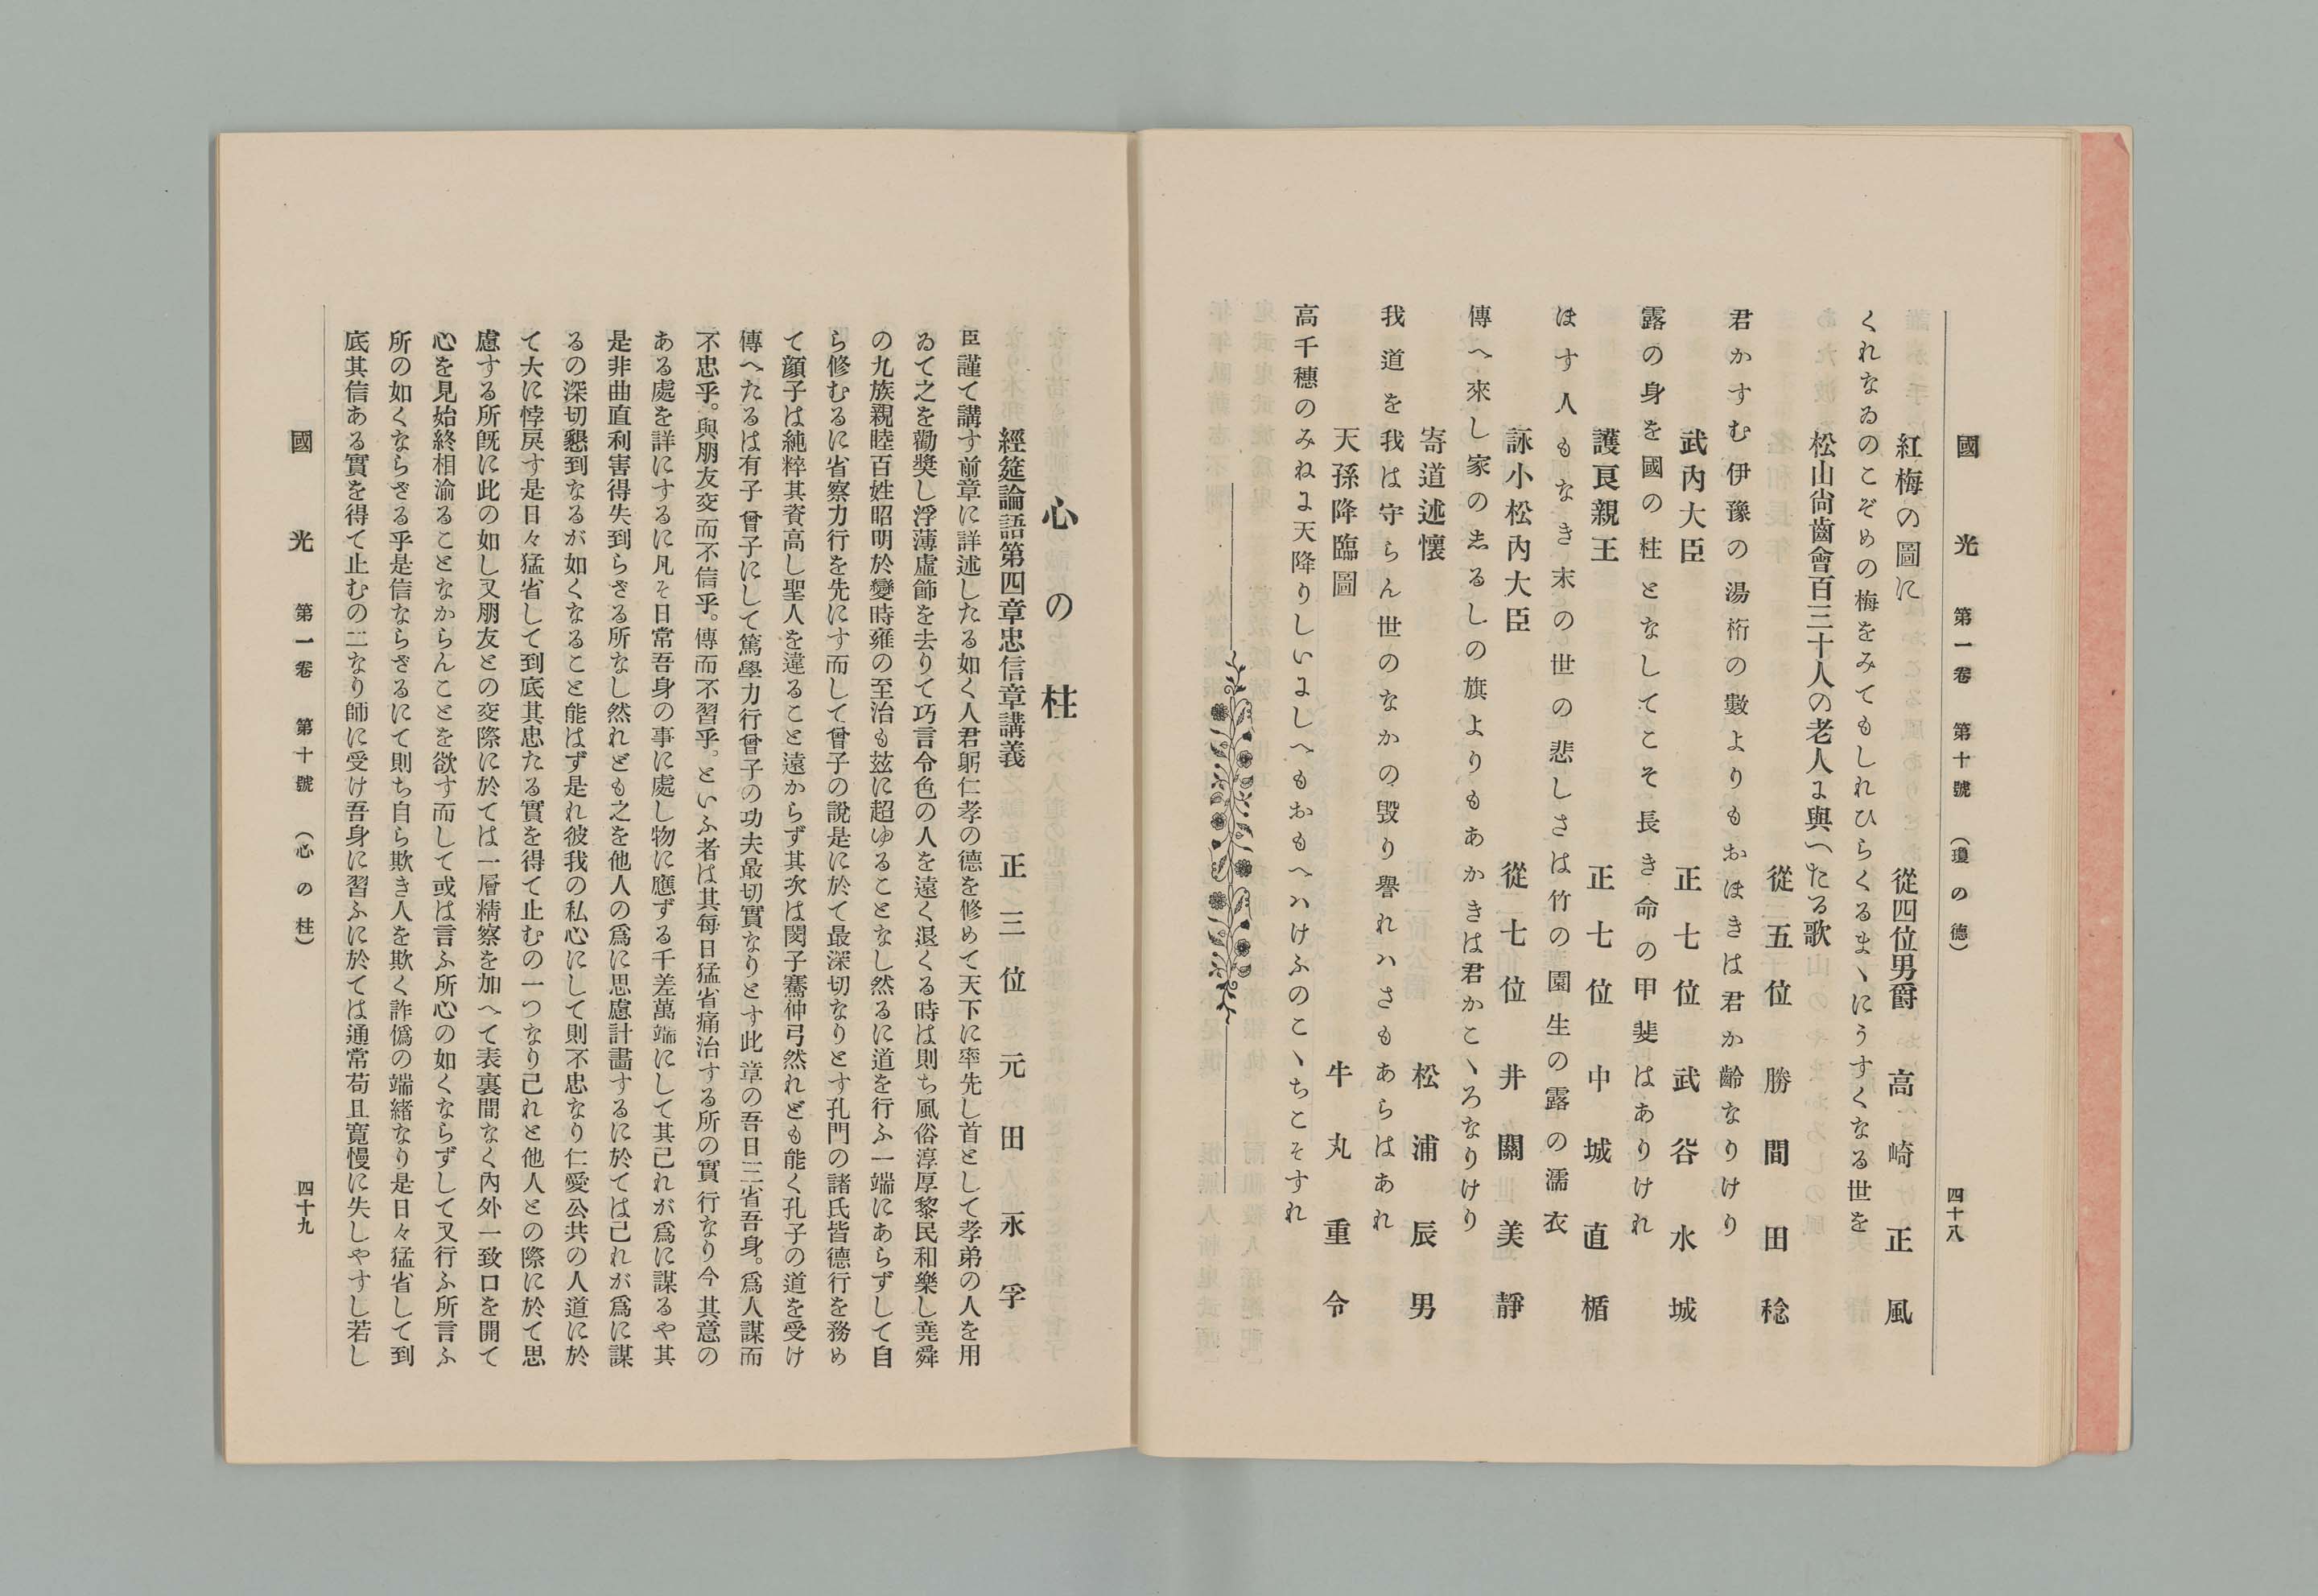 國光 第一卷 第十號 （瓊の德） 四十八
紅梅の圖に 從四位男爵 高崎正風
くれなゐのこぞめの梅をみてもしれひらくるまゝにうすくなる世を
松山尙齒會百三十人の老人に與へたる歌
從五位 勝間田稔
君かすむ伊豫の湯桁の數よりもおほきは君か齡なりけり
武內大臣 正七位 武谷水城
露の身を國の柱となしてこそ長き命の甲斐はありけれ
護良親王 正七位 中城直楯
ほす人もなき末の世の悲しさは竹の園生の露の濡衣
詠小松內大臣 從七位 井關美靜
傳へ來し家のしるしの旗よりもあかきは君かこゝろなりけり
寄道述懷 松浦辰男
我道を我は守らん世のなかの毀り譽れハさもあらはあれ
天孫降臨圖 牛丸重令
高千穗のみねに天降りしいにしへもおもへハけふのこゝちこそすれ
心の柱
經筵論語第四章忠信章講義 正三位 元田永孚
臣謹て講す前章に詳述したる如く人君躬仁孝の德を修めて天下に率先し首として孝弟の人を用
ゐて之を勸奬し浮薄虛節を去りて巧言令色の人を遠く退くる時は則ち風俗淳厚黎民和樂し堯舜
の九族親睦百姓昭明於變時雍の至治も玆に超ゆることなし然るに道を行ふ一端にあらずして自
ら修むるに省察力行を先にす而して曾子の說是に於て最深切なりとす孔門の諸氏皆德行を務め
て顏子は純粹其資高し聖人を違ること遠からず其次は閔子騫仲弓然れども能く孔子の道を受け
傳へたるは有子曾子にして篤學力行曾子の功夫最切實なりとす此章の吾日三省吾身。爲人謀而
不忠乎。與朋友交而不信乎。傳而不習乎。といふ者は其每日猛省痛治する所の實行なり今其意の
ある處を詳にするに凡そ日常吾身の事に處し物に應ずる千差萬端にして其己れが爲に謀るや其
是非曲直利害得失到らざる所なし然れども之を他人の爲に思慮計畫するに於ては己れが爲に謀
るの深切懇到なるが如くなること能はず是れ彼我の私心にして則不忠なり仁愛公共の人道に於
て大に悖戾す是日々猛省して到底其忠たる實を得て止むの一つなり己れと他人との際に於て思
慮する所旣に此の如し又朋友との交際に於ては一層精察を加へて表裏間なく內外一致口を開て
心を見始終相渝ることなからんことを欲す而して或は言ふ所心の如くならずして又行ふ所言ふ
所の如くならざる乎是信ならざるにて則ち自ら欺き人を欺く詐僞の端緖なり是日々猛省して到
底其信ある實を得て止むの二なり師に受け吾身に習ふに於ては通常苟且寬慢に失しやすし若し
國光 第一卷 第十號 （心の柱） 四十九